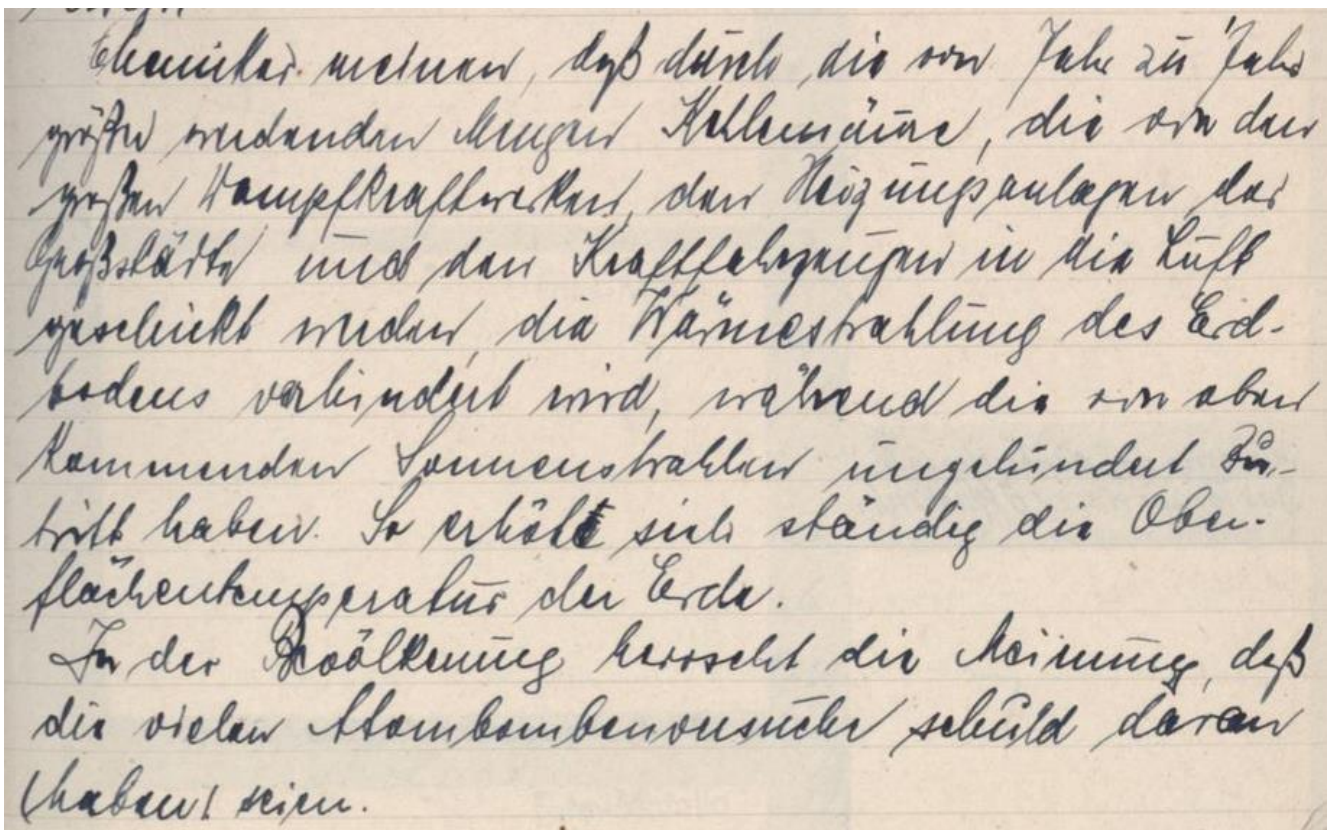 Chemiker meinen, daß durch die von Jahr zu Jahr
größer werdenden Mengen Kohlensäure, die von den
großen Dampfkraftwerken, den Heizungsanlagen der
Großstädte und den Kraftfahrzeugen in die Luft
geschickt werden, die Wärmestrahlung des Erd-
bodens verhindert wird, während die von oben
kommenden Sonnenstrahlen ungehindert Zu-
tritt haben. So erhöht sich ständig die Ober-
flächentemperatur der Erde.
In der Bevölkerung herrscht die Meinung, daß
die vielen Atombombenversuche schuld daran
(haben) seien.